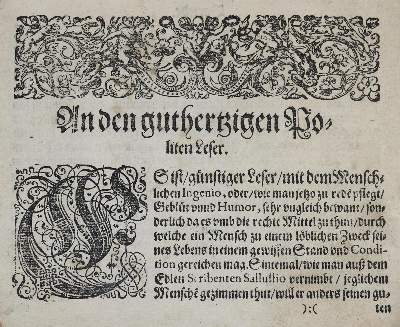 An den guthertzigen Po-
liten Leser.
ES ist/günstiger Leser/mit dem Mensch-
lichen Ingenio, oder/wie man jetzo zu redē pfleget/
Geblüt vnnd Humor, sehr vngleich bewant/son-
derlich da es vmb die rechte Mittel zu thun/durch
welche ein Mensch zu einem löblichen Zweck sei-
nes Lebens in einem gewissen Stand vnd Condi-
tion gereichen mag. Sintemal/wie man auß dem
Edlen Scribenten Sallustio vernimbt / jeglichem
Menschē gezimmen thut/will er anders seinen gu-
):( ten